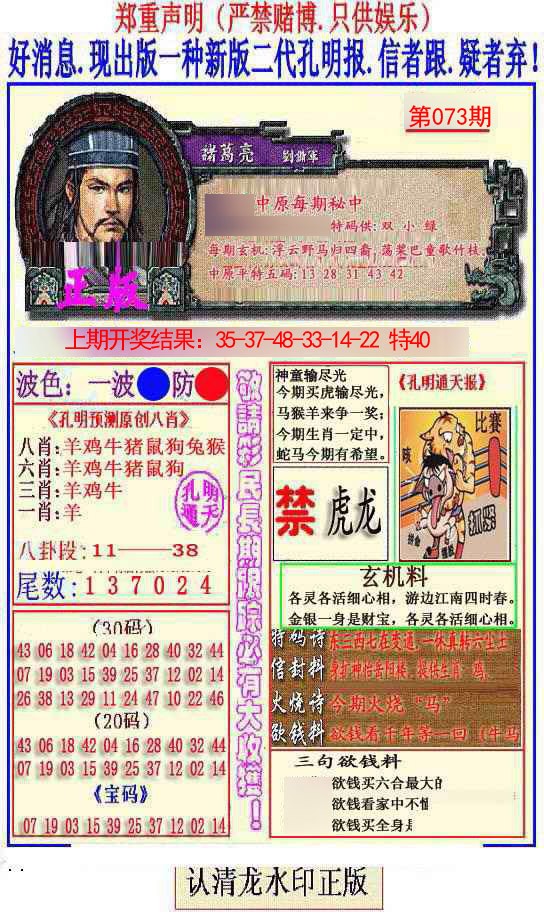 郑重声明（严禁赌博.只供娱乐）
好消息.现出版一种新版二代孔明报.信者跟.疑者弃!
第073期
諸葛亮 劉備軍
中原每期秘中
特码供: 双 小 绿
每期玄机:浮云野马归四裔,荡桨巴童歌竹枝.
中原平特五码:13 28 31 43 42
正版
上期开奖结果：35-37-48-33-14-22 特40
波色：一波 防
《孔明预测原创八肖》
八肖:羊鸡牛猪鼠狗兔猴
六肖:羊鸡牛猪鼠狗
三肖:羊鸡牛
一肖:羊
孔明
通天
八卦段:11——38
尾数:137024
敬請彩民長期跟踪必有大收獲！
神童输尽光
今期买虎输尽光,
马猴羊来争一奖;
今期生肖一定中,
蛇马今期有希望。
《孔明通天报》
比赛
抓奖
禁 虎龙
玄机料
各灵各活细心相，游边江南四时春。
金银一身是财宝，各灵各活细心相。
(30码)
43 06 18 42 04 16 28 40 32 44
07 19 03 15 39 25 37 12 02 14
26 38 13 29 11 24 47 10 22 46
(20码)
43 06 18 42 04 16 28 40 32 44
07 19 03 15 39 25 37 12 02 14
《宝码》
07 19 03 15 39 25 37 12 02 14
特码诗
信封料
火烧诗 今期火烧“马”
欲钱料 欲钱看千年等一回（牛马
三句欲钱料
欲钱买六合最大的
欲钱看家中不
欲钱买全身
认清龙水印正版